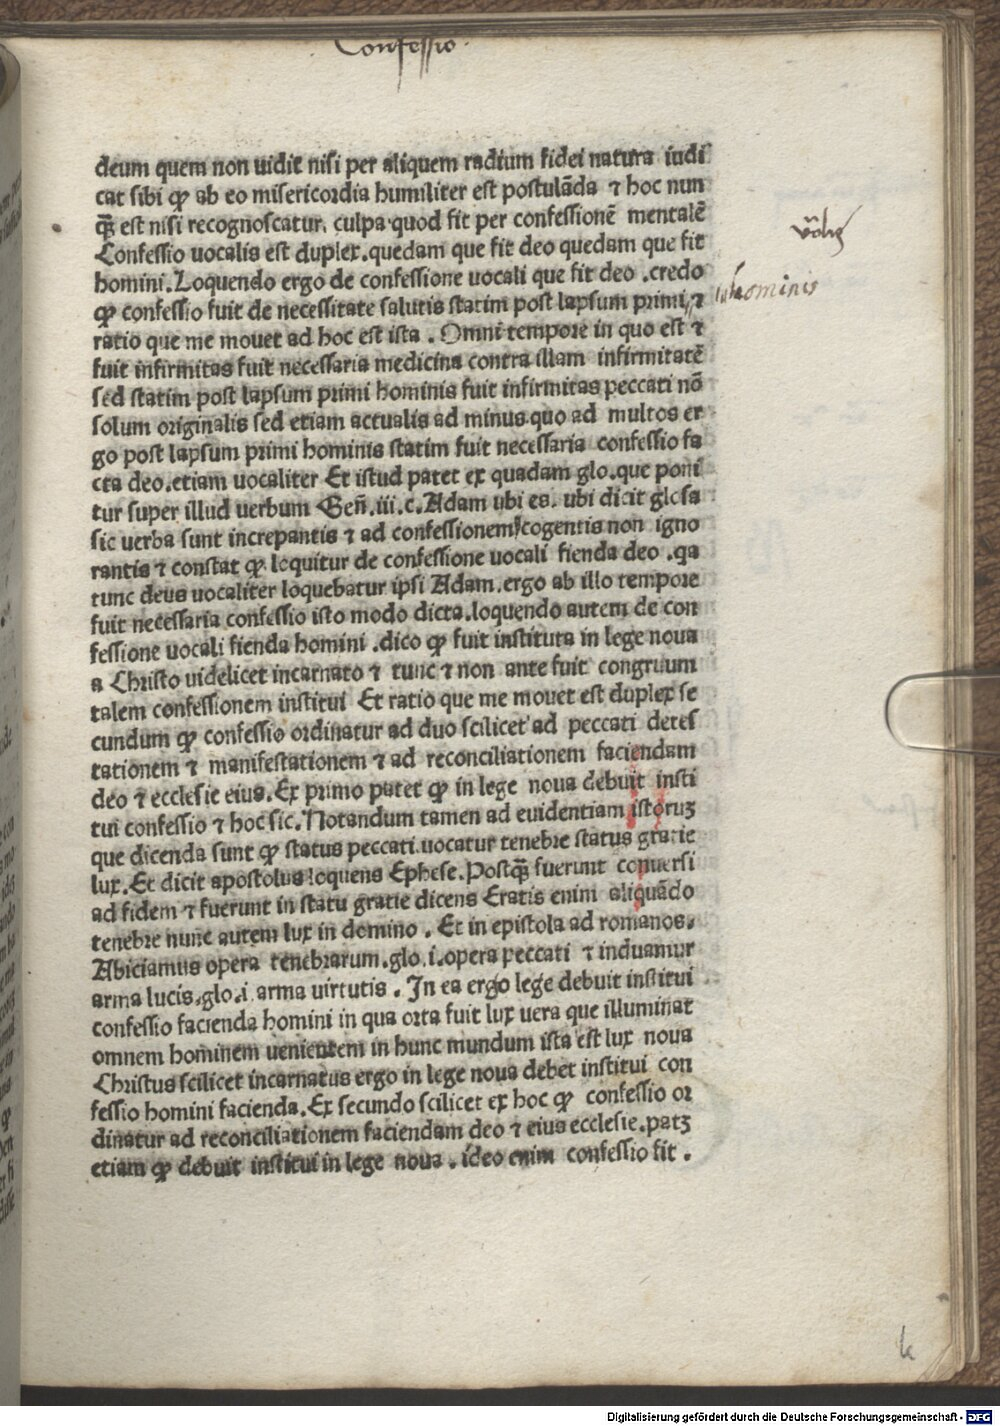 Confessio.
deum quem non uidit nisi per aliquem radium fidei natura iudi
cat sibi ꝙ ab eo misericordia humiliter est postulāda ⁊ hoc nun
q̄ꝫ est nisi recognoscatur. culpa quod fit per confessionē mentalē
Confessio uocalis est duplex. quedam que fit deo quedam que fit
homini. Loquendo ergo de confessione uocali que fit deo .credo
ꝙ confessio fuit de necessitate salutis statim post lapsum primi ⁊
hominis
ratio que me mouet ad hoc est ista . Omni tempore in quo est ⁊
fuit infirmitas fuit necessaria medicina contra illam infirmitatē
sed statim post lapsum primi hominis fuit infirmitas peccati nō
solum originalis sed etiam actualis ad minus quo ad multos er
go post lapsum primi hominis statim fuit necessaria confessio fa
cta deo.etiam uocaliter Et istud patet ex quadam glo.que poni
tur super illud uerbum Geñ.iii.c.Adam ubi es. ubi dicit glosa
sic uerba sunt increpantis ⁊ ad confessionem cogentis non igno
rantis ⁊ constat ꝙ loquitur de confessione uocali fienda deo .qa
tunc deus uocaliter loquebatur ipsi Adam.ergo ab illo tempore
fuit necessaria confessio isto modo dicta.loquendo autem de con
fessione uocali fienda homini .dico ꝙ fuit instituta in lege noua
a Christo uidelicet incarnato ⁊ tunc ⁊ non ante fuit congruum
talem confessionem institui Et ratio que me mouet est duplex se
cundum ꝙ confessio ordinatur ad duo scilicet ad peccati detes
tationem ⁊ manifestationem ⁊ ad reconciliationem faciendam
deo ⁊ ecclesie eius. Ex primo patet ꝙ in lege noua debuit insti
tui confessio ⁊ hoc sic. Notandum tamen ad euidentiam istoruꝫ
que dicenda sunt ꝙ status peccati uocatur tenebre status gratie
lux. Et dicit apostolus loquens Ephese. Postq̄ꝫ fuerunt conuersi
ad fidem ⁊ fuerunt in statu gratie dicens Eratis enim aliquādo
tenebre nunc autem lux in domino . Et in epistola ad romanos.
Abiciamus opera tenebrarum.glo.i.opera peccati ⁊ induamur
arma lucis.glo.i.arma uirtutis . In ea ergo lege debuit institui
confessio facienda homini in qua orta fuit lux uera que illuminat
omnem hominem uenientem in hunc mundum ista est lux noua
Christus scilicet incarnatus ergo in lege noua debet institui con
fessio homini facienda. Ex secundo scilicet ex hoc ꝙ confessio or
dinatur ad reconciliationem faciendam deo ⁊ eius ecclesie.patꝫ
etiam ꝙ debuit institui in lege noua . ideo enim confessio fit .
k
Digitalisierung gefördert durch die Deutsche Forschungsgemeinschaft - DFG